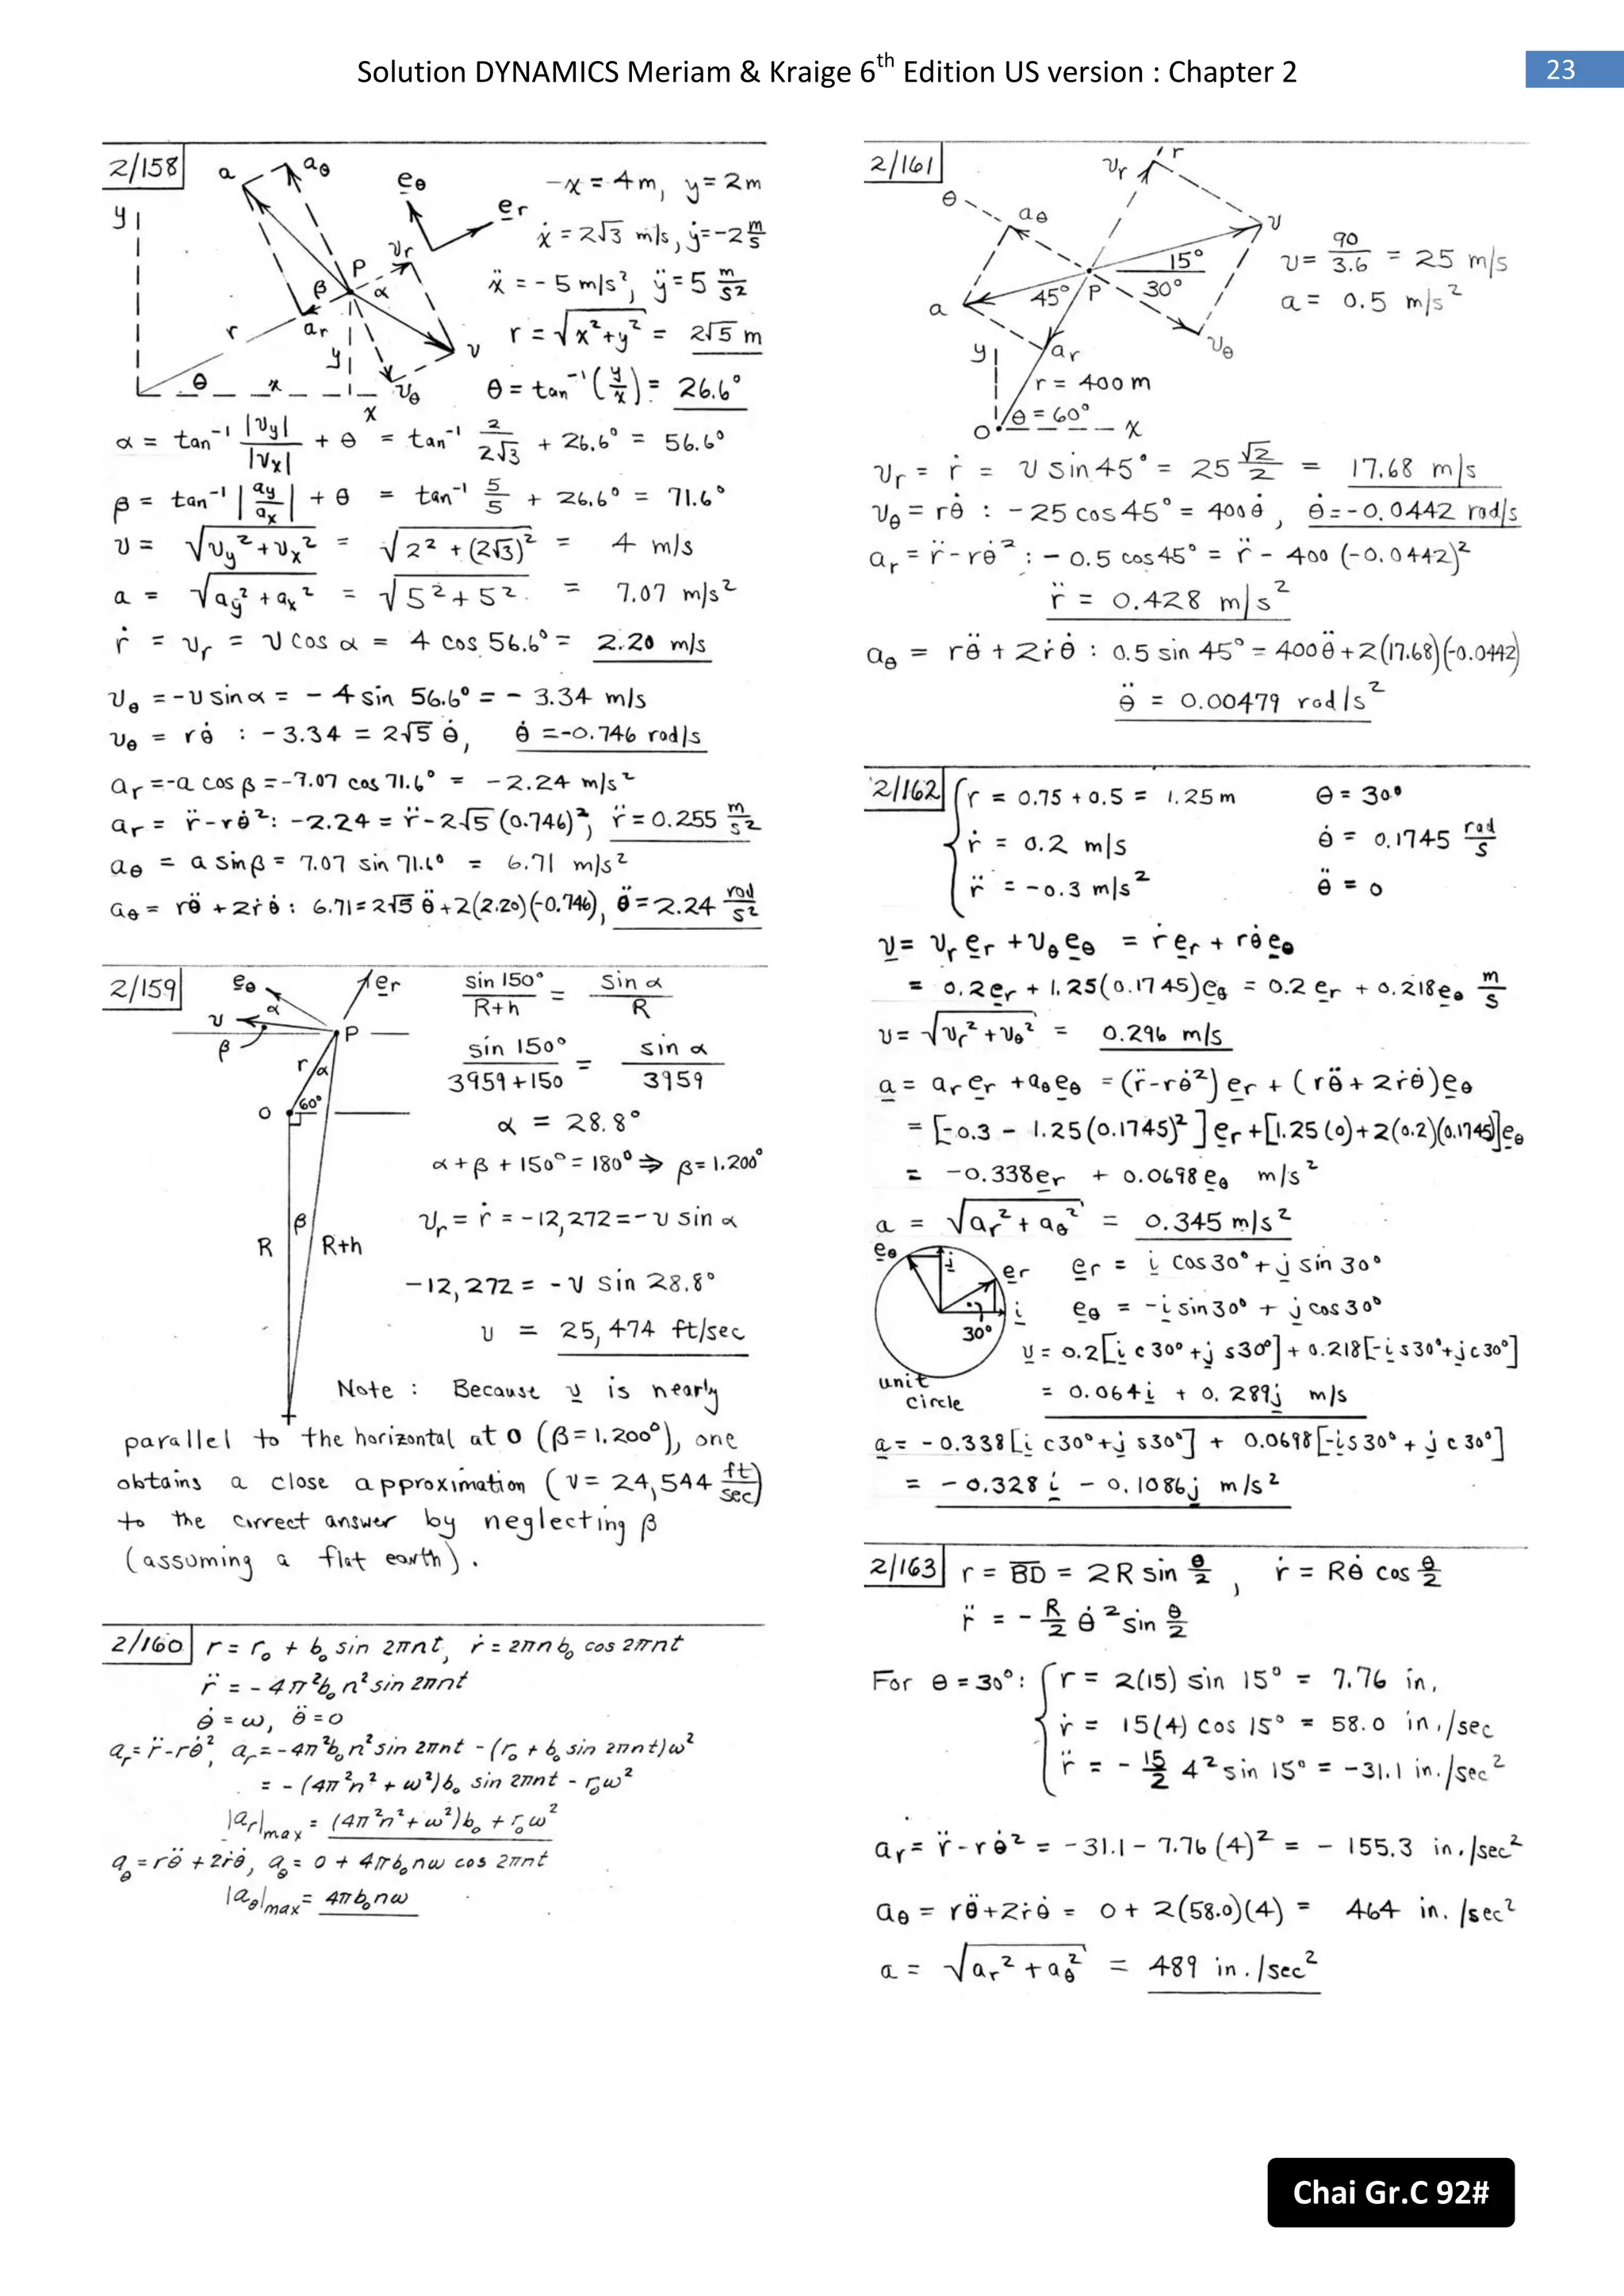 Solution DYNAMICS Meriam & Kraige 6th Edition US version : Chapter 2
23
2/158
a
aθ
eθ
er
y
P
vr
β
α
r
ar
y
v
θ
x
vθ
x
-x = 4m, y = 2m
ẋ = 2√3 m/s, ẏ = -2 m/s
ẍ = -5 m/s², ÿ = 5 m/s²
r = √(x²+y²) = 2√5 m
θ = tan⁻¹(y/x) = 26.6°
α = tan⁻¹ |vy|/|vx| + θ = tan⁻¹ 2/(2√3) + 26.6° = 56.6°
β = tan⁻¹ |ay/ax| + θ = tan⁻¹ 5/5 + 26.6° = 71.6°
v = √(vy² + vx²) = √(2² + (2√3)²) = 4 m/s
a = √(ay² + ax²) = √(5² + 5²) = 7.07 m/s²
ṙ = vr = v cos α = 4 cos 56.6° = 2.20 m/s
vθ = -v sin α = -4 sin 56.6° = -3.34 m/s
vθ = rθ̇ : -3.34 = 2√5 θ̇, θ̇ = -0.746 rad/s
ar = -a cos β = -7.07 cos 71.6° = -2.24 m/s²
ar = r̈ - rθ̇²: -2.24 = r̈ - 2√5 (0.746)², r̈ = 0.255 m/s²
aθ = a sin β = 7.07 sin 71.6° = 6.71 m/s²
aθ = rθ̈ + 2ṙθ̇ : 6.71 = 2√5 θ̈ + 2(2.20)(-0.746), θ̈ = 2.24 rad/s²
2/159
eθ
er
v
α
P
β
r
α
O
60°
β
R
R+h
sin 150°/(R+h) = sin α/R
sin 150°/(3959+150) = sin α/3959
α = 28.8°
α + β + 150° = 180° ⇒ β = 1.200°
vr = ṙ = -12,272 = -v sin α
-12,272 = -v sin 28.8°
v = 25,474 ft/sec
Note : Because v is nearly
parallel to the horizontal at O (β = 1.200°), one
obtains a close approximation (v = 24,544 ft/sec)
to the correct answer by neglecting β
(assuming a flat earth).
2/160
r = r₀ + b₀ sin 2πnt, ṙ = 2πn b₀ cos 2πnt
r̈ = -4π²b₀n² sin 2πnt
θ̇ = ω, θ̈ = 0
ar = r̈ - rθ̇², ar = -4π²b₀n² sin 2πnt - (r₀ + b₀ sin 2πnt)ω²
= -(4π²n² + ω²)b₀ sin 2πnt - r₀ω²
|ar|max = (4π²n² + ω²)b₀ + r₀ω²
aθ = rθ̈ + 2ṙθ̇, aθ = 0 + 4πb₀nω cos 2πnt
|aθ|max = 4πb₀nω
2/161
vr
r
θ
aθ
v
15°
30°
45°
P
a
ar
vθ
y
r = 400 m
θ = 60°
O
x
v = 90/3.6 = 25 m/s
a = 0.5 m/s²
vr = ṙ = v sin 45° = 25 √2/2 = 17.68 m/s
vθ = rθ̇ : -25 cos 45° = 400θ̇, θ̇ = -0.0442 rad/s
ar = r̈ - rθ̇² : -0.5 cos 45° = r̈ - 400 (-0.0442)²
r̈ = 0.428 m/s²
aθ = rθ̈ + 2ṙθ̇ : 0.5 sin 45° = 400θ̈ + 2(17.68)(-0.0442)
θ̈ = 0.00479 rad/s²
2/162
r = 0.75 + 0.5 = 1.25 m θ = 30°
ṙ = 0.2 m/s θ̇ = 0.1745 rad/s
r̈ = -0.3 m/s² θ̈ = 0
v = vr er + vθ eθ = ṙ er + rθ̇ eθ
= 0.2 er + 1.25(0.1745)eθ = 0.2 er + 0.218 eθ m/s
v = √(vr² + vθ²) = 0.296 m/s
a = ar er + aθ eθ = (r̈ - rθ̇²) er + (rθ̈ + 2ṙθ̇) eθ
= [-0.3 - 1.25(0.1745)²] er + [1.25(0) + 2(0.2)(0.1745)] eθ
= -0.338 er + 0.0698 eθ m/s²
a = √(ar² + aθ²) = 0.345 m/s²
eθ
j
er
i
30°
unit
circle
er = i cos 30° + j sin 30°
eθ = -i sin 30° + j cos 30°
v = 0.2[i c30° + j s30°] + 0.218[-i s30° + j c30°]
= 0.064 i + 0.289 j m/s
a = -0.338[i c30° + j s30°] + 0.0698[-i s30° + j c30°]
= -0.328 i - 0.1086 j m/s²
2/163
r = BD = 2R sin θ/2, ṙ = Rθ̇ cos θ/2
r̈ = -R/2 θ̇² sin θ/2
For θ = 30° : r = 2(15) sin 15° = 7.76 in.
ṙ = 15(4) cos 15° = 58.0 in./sec
r̈ = -15/2 4² sin 15° = -31.1 in./sec²
ar = r̈ - rθ̇² = -31.1 - 7.76(4)² = -155.3 in./sec²
aθ = rθ̈ + 2ṙθ̇ = 0 + 2(58.0)(4) = 464 in./sec²
a = √(ar² + aθ²) = 489 in./sec²
Chai Gr.C 92#